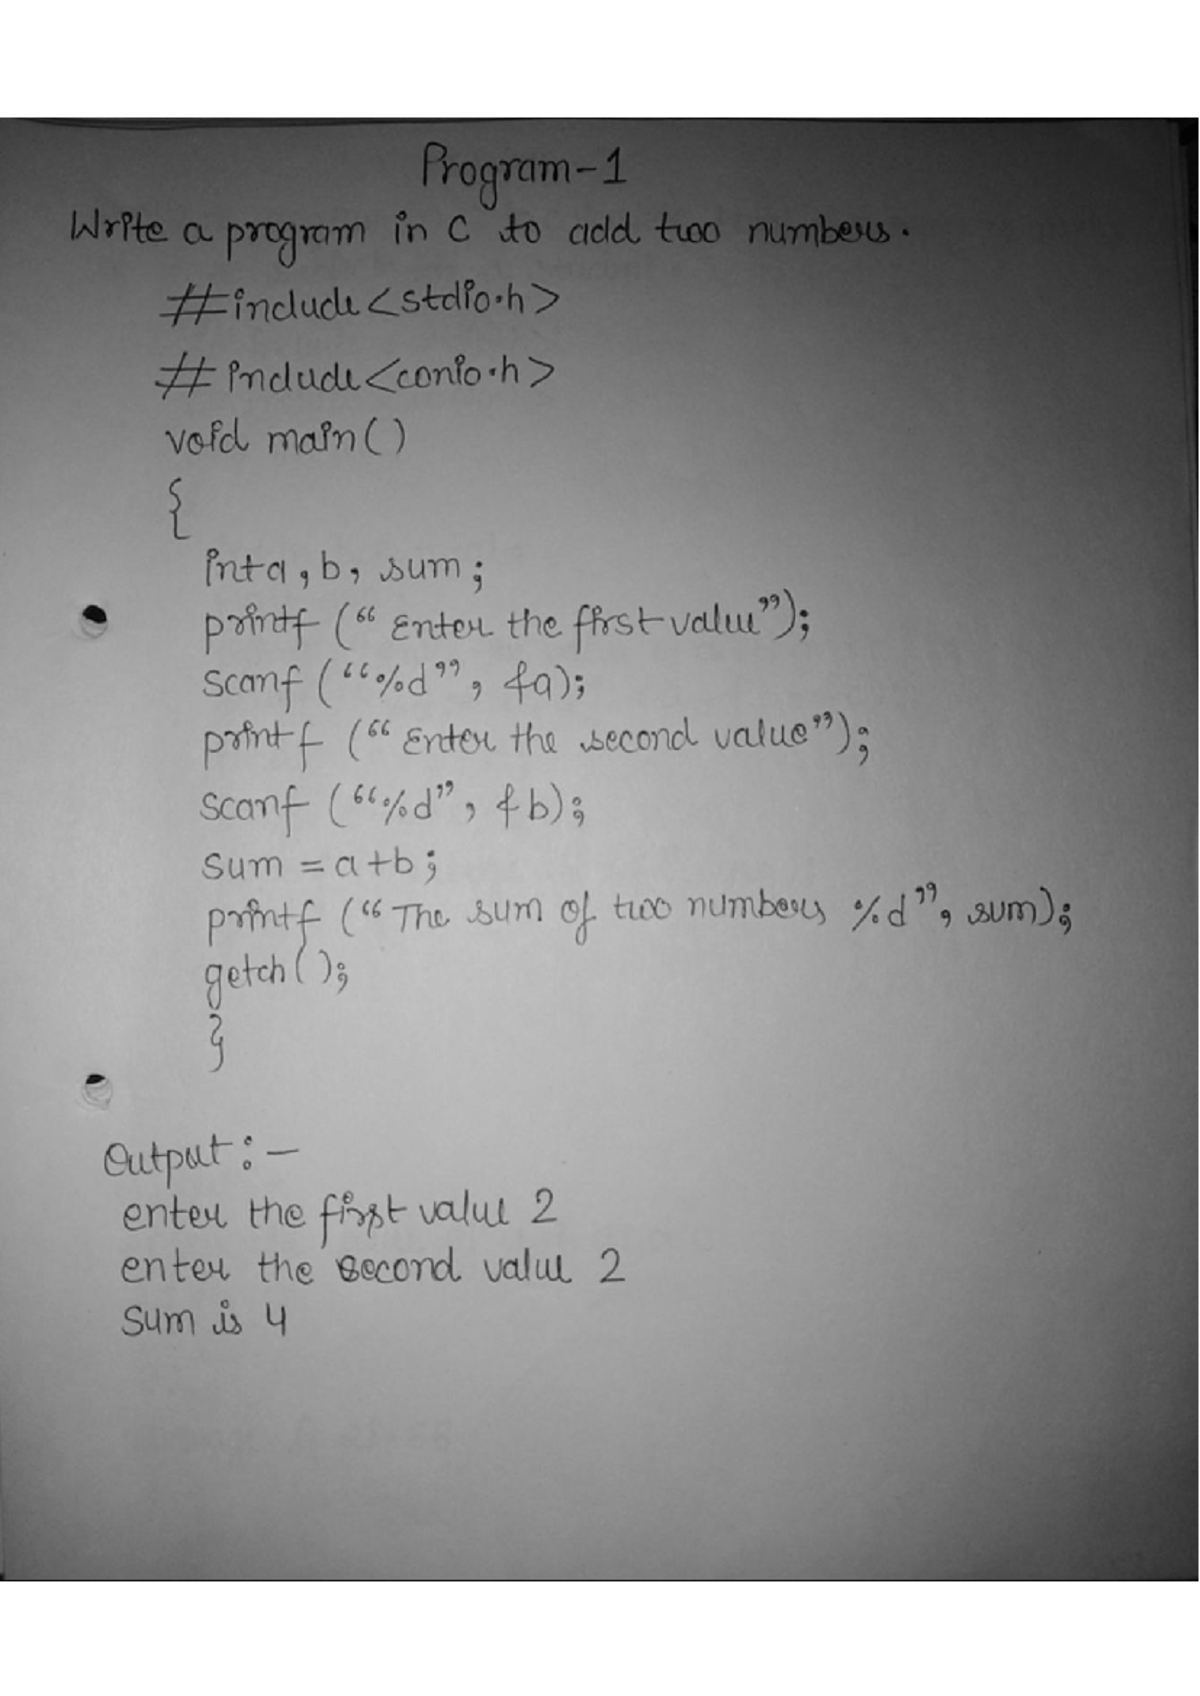 Program-1
Write a program in C to add two numbers.
#include<stdio.h>
# include<conio.h>
void main()
{
int a, b, sum;
printf (“ Enter the first value”);
scanf (“%d”, &a);
printf (“ Enter the second value”);
scanf (“%d”, &b);
sum = a+b;
printf (“ The sum of two numbers %d”, sum);
getch();
}
Output:-
enter the first value 2
enter the second value 2
sum is 4